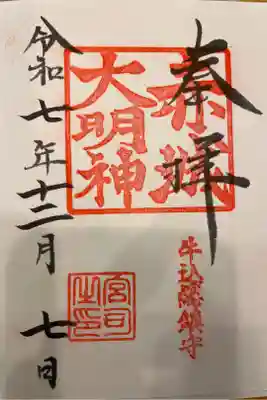 奉拝
赤城
大明神
牛込總鎮守
令和七年十二月七日
宮司
之印